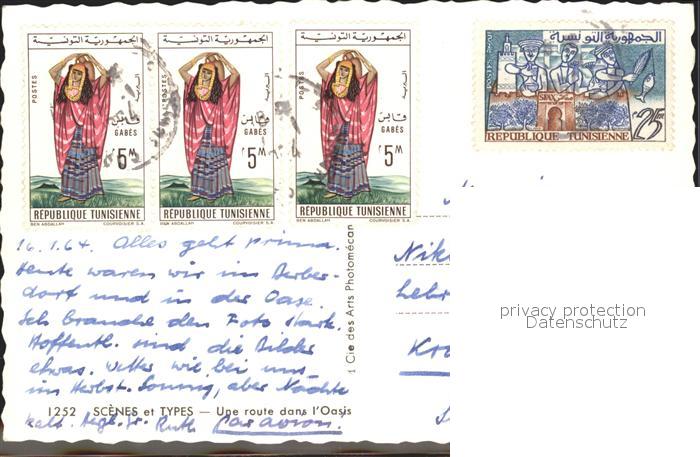 الجمهورية التونسية
الجمهورية التونسية
الجمهورية التونسية
الجمهورية التونسية
POSTES
POSTES
POSTES
البريد
قابس
GABÈS
5M
قابس
GABÈS
5M
قابس
GABÈS
5M
SFAX
25M
RÉPUBLIQUE TUNISIENNE
RÉPUBLIQUE TUNISIENNE
RÉPUBLIQUE TUNISIENNE
RÉPUBLIQUE TUNISIENNE
BEN ABDALLAH COURVOISIER S.A.
BEN ABDALLAH COURVOISIER S.A.
BEN ABDALLAH COURVOISIER S.A.
16.1.64. Alles geht prima.
Heute waren wir im Berber-
dorf und in der Oase.
Ich brauche den Foto stark.
Hoffentl. sind die Bilder
etwas. Wetter wie bei uns
im Herbst. Sonnig, aber Nächte
kalt. Ruth Par avion.
1252 SCÈNES et TYPES — Une route dans l'Oasis
1 Cie des Arts Photomécan
Nik
Lehr
Kr
privacy protection
Datenschutz